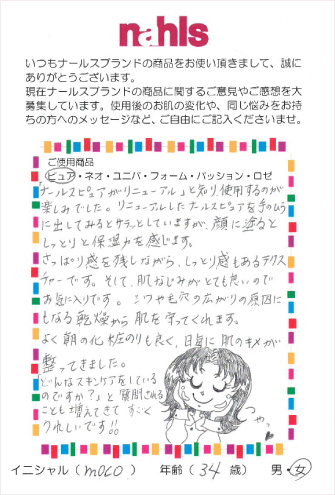 nahls
いつもナールスブランドの商品をお使い頂きまして、誠に
ありがとうございます。
現在ナールスブランドの商品に関するご意見やご感想を大
募集しています。使用後のお肌の変化や、同じ悩みをお持
ちの方へのメッセージなど、ご自由にご記入くださいませ。
ご使用商品
ピュア・ネオ・ユニバ・フォーム・パッション・ロゼ
ナールスピュアがリニューアルしと知り使用するのが
楽しみでした。リニューアルしたナールスピュアを手のひら
に出してみるとサラッとしていますが、顔に塗ると
しっとりと保湿力を感じます。
さっぱり感を残しながら、しっとり感もあるテクス
チャーです。そして、肌なじみがとても良いので
お気に入りです。シワや毛穴の広がりの原因に
もなる乾燥から肌を守ってくれます。
よく朝の化粧のりも良く、日毎に肌のキメが
整ってきました。
「どんなスキンケアをしている
のですか？」と質問される
ことも増えてきてすごく
うれしいです!!
つやっ
イニシャル（moco） 年齢（34歳） 男・女